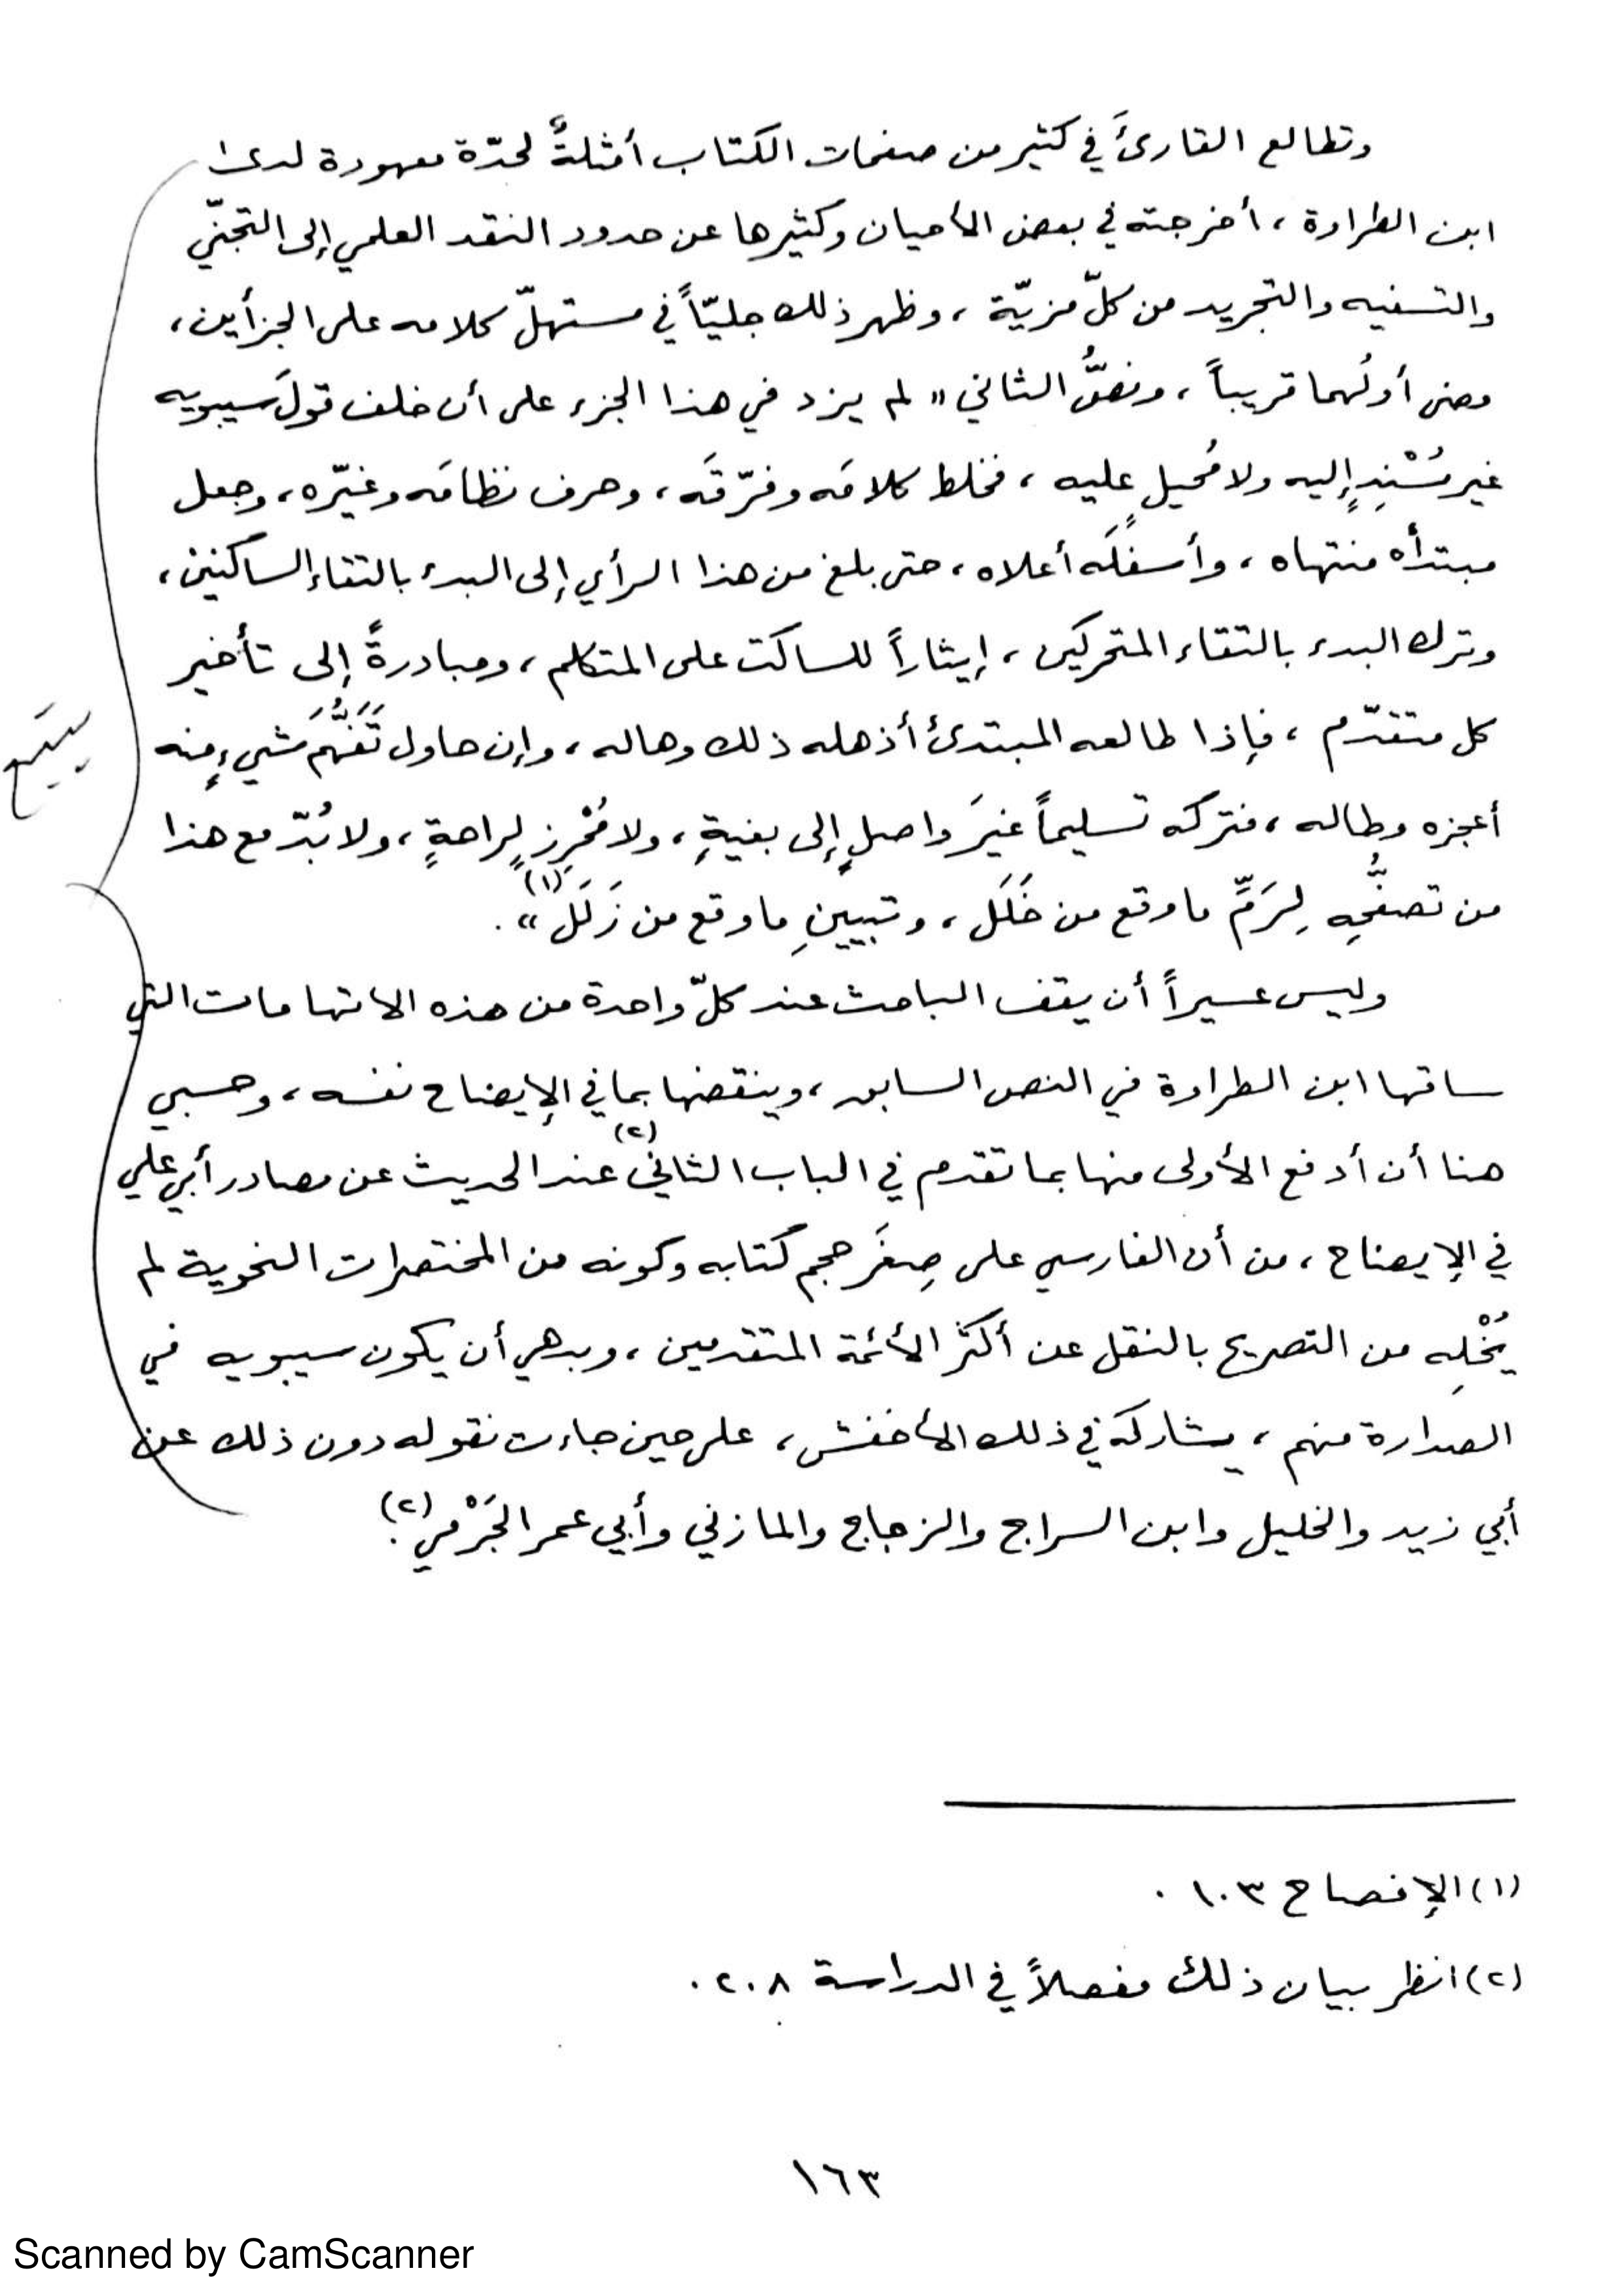 وتطالع القارئَ في كثير من صفحات الكتاب أمثلةٌ لحدّة معهودة لدى
ابن الطراوة ، أخرجته في بعض الأحيان وكثيرها عن حدود النقد العلمي إلى التجنّي
والتسفيه والتجريد من كلّ مزيّة ، وظهر ذلك جليّاً في مستهلّ كلامه على الجزأين ،
مضى أولُهما قريباً ، ونصُّ الثاني « لم يزد في هذا الجزء على أن خلف قولَ سيبويه
غير مُسْنِدٍ إليه ولا مُحيلٍ عليه ، فخلط كلامَه وفرّقَه ، وحرف نظامَه وغيّره ، وجعل
مبتدأه منتهاه ، وأسفلَه أعلاه ، حتى بلغ من هذا الرأي إلى البدء بالتقاء الساكنين ،
وترك البدء بالتقاء المتحركين ، إيثاراً للساكت على المتكلم ، ومبادرةً إلى تأخير
كل متقدّم ، فإذا طالعه المبتدئ أذهله ذلك وهاله ، وإن حاول تَفَهُّمَ شيءٍ منه
أعجزه وطاله ، فتركه تسليماً غيرَ واصلٍ إلى بغيةٍ ، ولا مُحْرِزٍ لِراحةٍ ، ولا بُدّ مع هذا
من تصفُّحِه لِرَمِّ ما وقع من خَلَل ، وتبيينِ ما وقع من زَلَل » (١) .
وليس عسيراً أن يقف الباحث عند كلّ واحدة من هذه الاتهامات التي
ساقها ابن الطراوة في النص السابق ، وينقضها بما في الإيضاح نفسه ، وحسبي
هنا أن أدفع الأولى منها بما تقدم في الباب الثاني (٢) عند الحديث عن مصادر أبي علي
في الإيضاح ، من أن الفارسي على صِغَر حجم كتابه وكونه من المختصرات النحوية لم
يُخْلِه من التصريح بالنقل عن أكثر الأئمة المتقدمين ، وبدهي أن يكون سيبويه في
الصدارة منهم ، يشاركه في ذلك الأخفش ، على حين جاءت نقوله دون ذلك عن
أبي زيد والخليل وابن السراج والزجاج والمازني وأبي عمر الجَرْمي (٢) .
(١) الإفصاح ١٠٣ .
(٢) انظر بيان ذلك مفصلاً في الدراسة ٢٠٨ .
١٦٣
Scanned by CamScanner